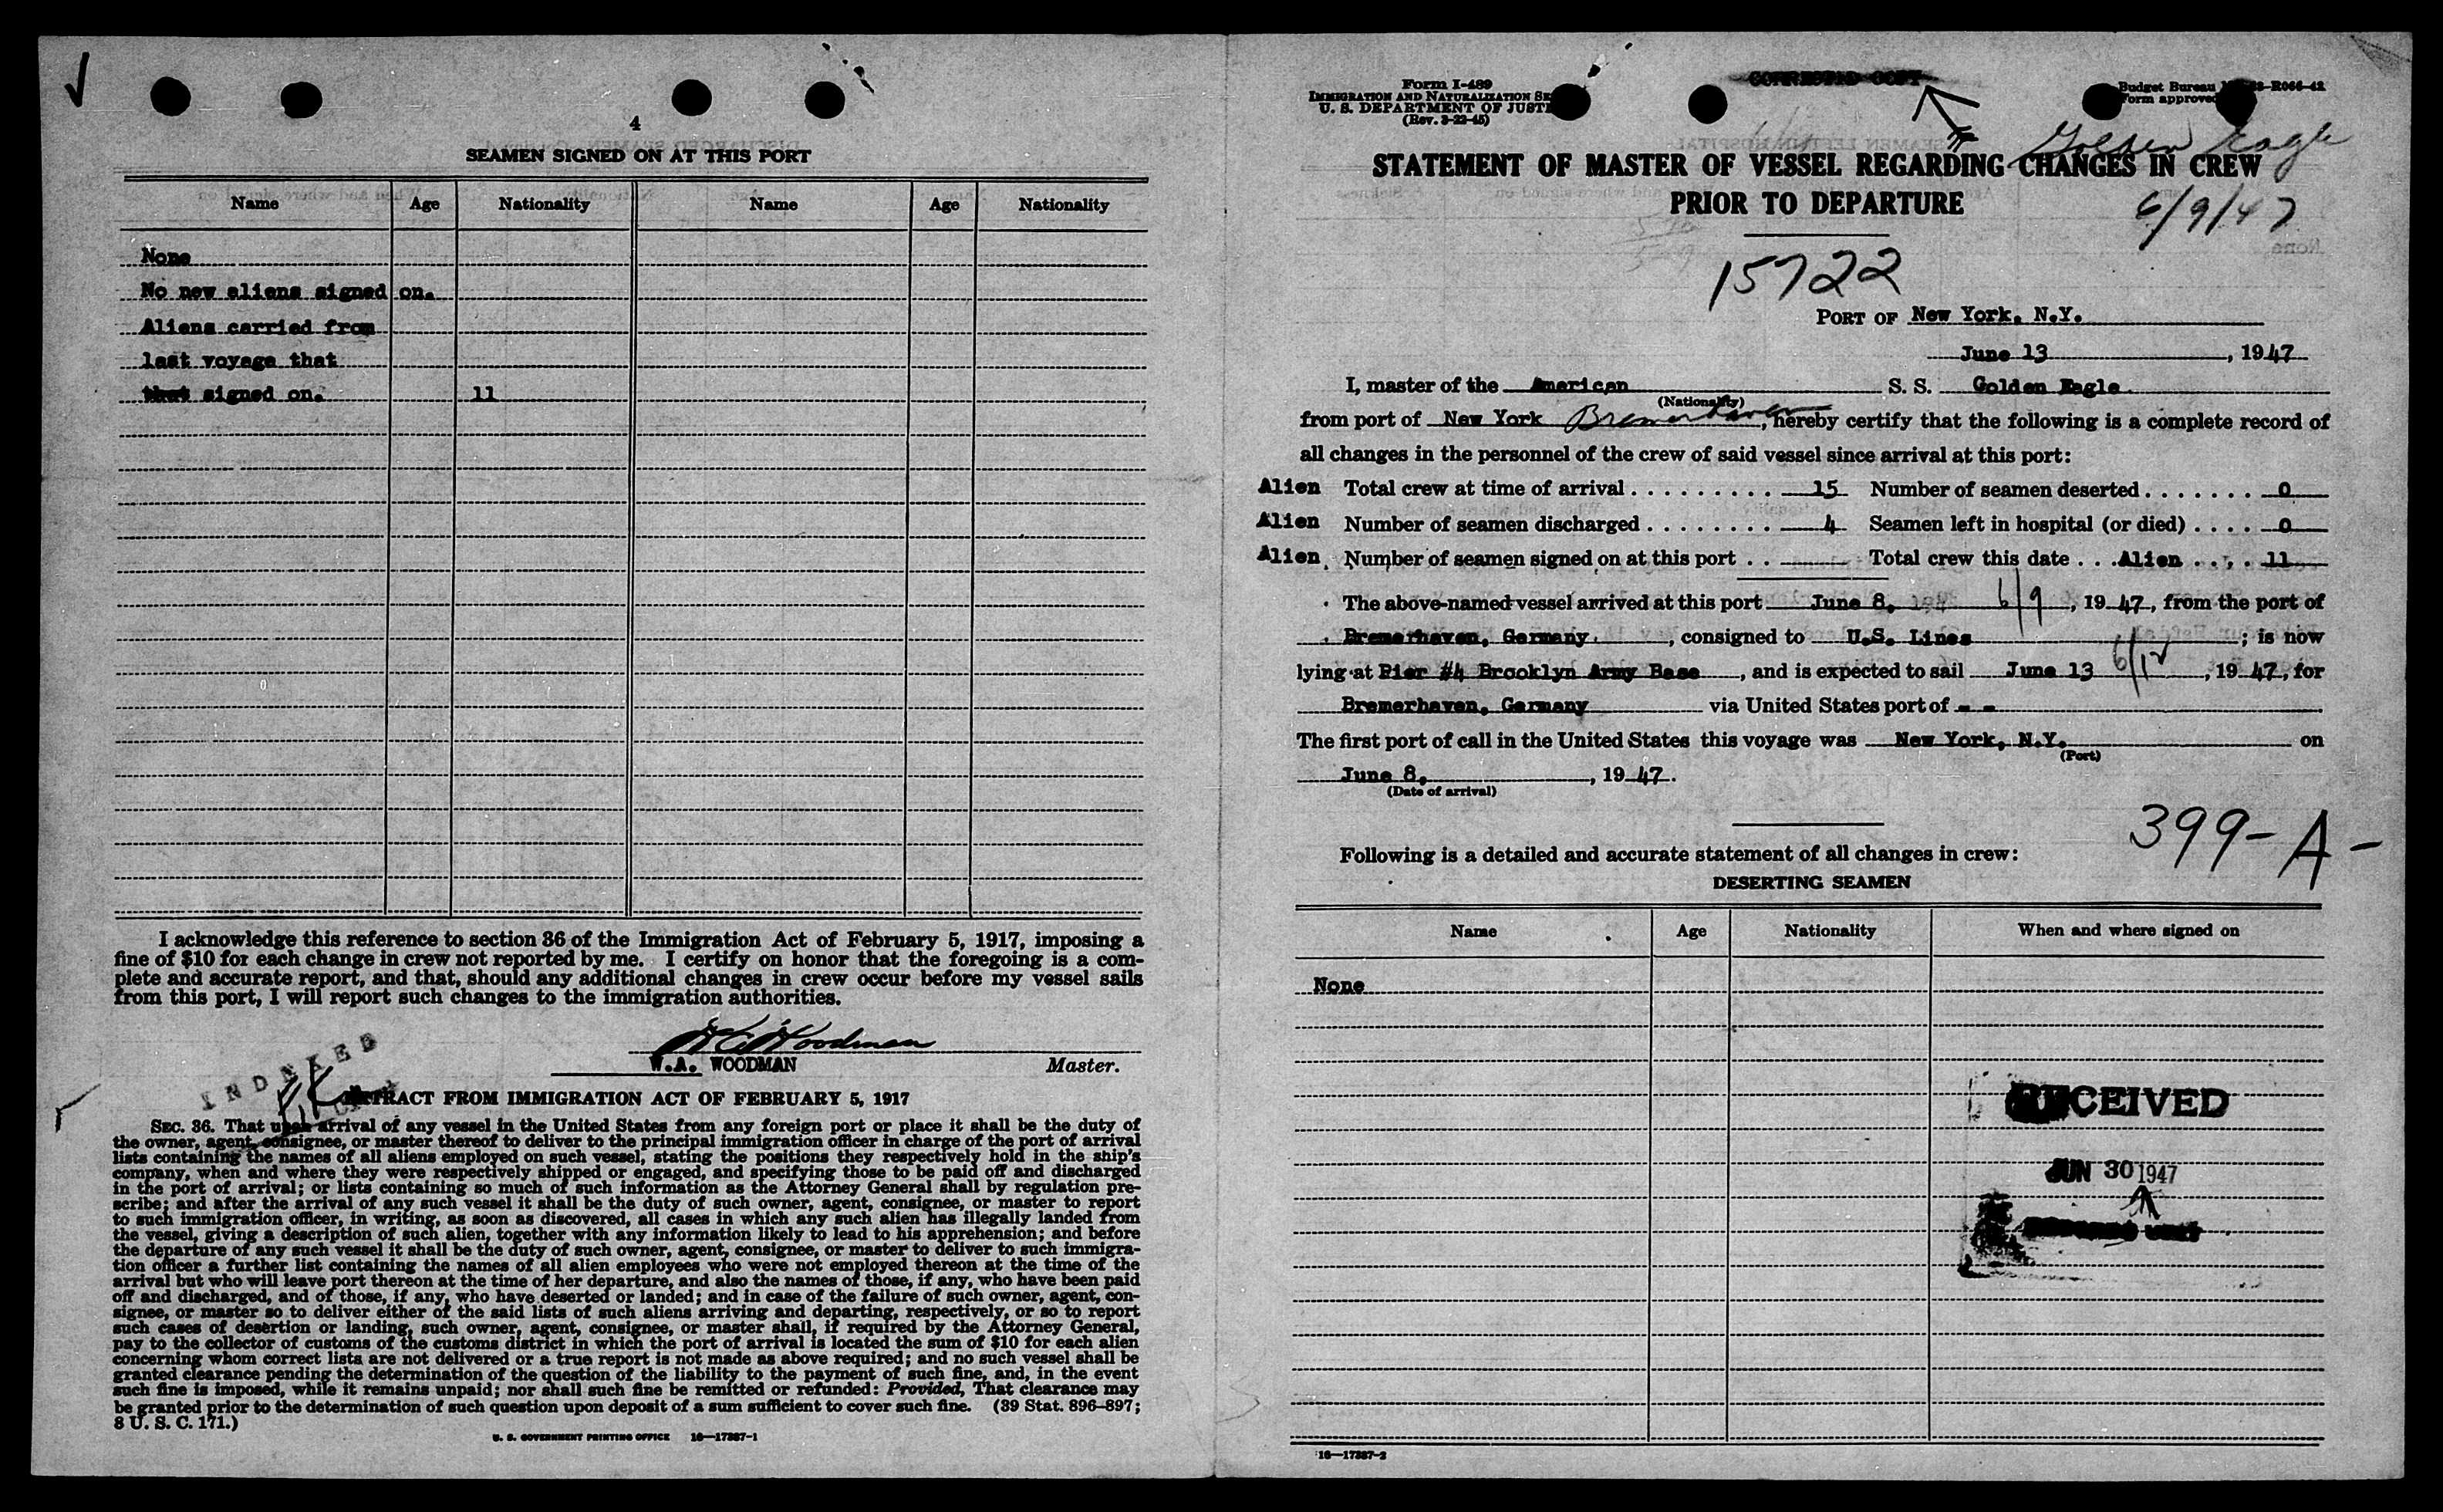 4
SEAMEN SIGNED ON AT THIS PORT
Name Age Nationality Name Age Nationality
None
No new aliens signed on.
Aliens carried from
last voyage that
that signed on. 11
I acknowledge this reference to section 36 of the Immigration Act of February 5, 1917, imposing a
fine of $10 for each change in crew not reported by me. I certify on honor that the foregoing is a com-
plete and accurate report, and that, should any additional changes in crew occur before my vessel sails
from this port, I will report such changes to the immigration authorities.
Woodman
W.A. WOODMAN Master.
INDEXED
EXTRACT FROM IMMIGRATION ACT OF FEBRUARY 5, 1917
SEC. 36. That upon arrival of any vessel in the United States from any foreign port or place it shall be the duty of
the owner, agent, consignee, or master thereof to deliver to the principal immigration officer in charge of the port of arrival
lists containing the names of all aliens employed on such vessel, stating the positions they respectively hold in the ship's
company, when and where they were respectively shipped or engaged, and specifying those to be paid off and discharged
in the port of arrival; or lists containing so much of such information as the Attorney General shall by regulation pre-
scribe; and after the arrival of any such vessel it shall be the duty of such owner, agent, consignee, or master to report
to such immigration officer, in writing, as soon as discovered, all cases in which any such alien has illegally landed from
the vessel, giving a description of such alien, together with any information likely to lead to his apprehension; and before
the departure of any such vessel it shall be the duty of such owner, agent, consignee, or master to deliver to such immigra-
tion officer a further list containing the names of all alien employees who were not employed thereon at the time of the
arrival but who will leave port thereon at the time of her departure, and also the names of those, if any, who have been paid
off and discharged, and of those, if any, who have deserted or landed; and in case of the failure of such owner, agent, con-
signee, or master so to deliver either of the said lists of such aliens arriving and departing, respectively, or so to report
such cases of desertion or landing, such owner, agent, consignee, or master shall, if required by the Attorney General,
pay to the collector of customs of the customs district in which the port of arrival is located the sum of $10 for each alien
concerning whom correct lists are not delivered or a true report is not made as above required; and no such vessel shall be
granted clearance pending the determination of the question of the liability to the payment of such fine, and, in the event
such fine is imposed, while it remains unpaid; nor shall such fine be remitted or refunded: Provided, That clearance may
be granted prior to the determination of such question upon deposit of a sum sufficient to cover such fine. (39 Stat. 896–897;
8 U. S. C. 171.)
U. S. GOVERNMENT PRINTING OFFICE 16—17387-1
Form I-489
IMMIGRATION AND NATURALIZATION
U. S. DEPARTMENT OF JUST
(Rev. 3-22-45)
CORRECTED COPY
Budget Bureau R066-42
Form approved
Golden Eagle
STATEMENT OF MASTER OF VESSEL REGARDING CHANGES IN CREW
PRIOR TO DEPARTURE
6/9/47
15722
PORT OF New York, N.Y.
June 13, 1947
I, master of the American S. S. Golden Eagle
(Nationality)
from port of New York Bremerhaven, hereby certify that the following is a complete record of
all changes in the personnel of the crew of said vessel since arrival at this port:
Alien Total crew at time of arrival . . . . . . . . . 15 Number of seamen deserted . . . . . . . 0
Alien Number of seamen discharged . . . . . . . . 4 Seamen left in hospital (or died) . . . . 0
Alien Number of seamen signed on at this port . . Total crew this date . . . Alien . . . . 11
The above-named vessel arrived at this port June 8, 6/9, 1947, from the port of
Bremerhaven, Germany, consigned to U.S. Lines; is now
lying at Pier #4 Brooklyn Army Base, and is expected to sail June 13 6/12, 1947, for
Bremerhaven, Germany via United States port of - -
The first port of call in the United States this voyage was New York, N.Y. on
(Port)
June 8, 1947.
(Date of arrival)
399-A-
Following is a detailed and accurate statement of all changes in crew:
DESERTING SEAMEN
Name Age Nationality When and where signed on
None
RECEIVED
JUN 30 1947
16—17387-2